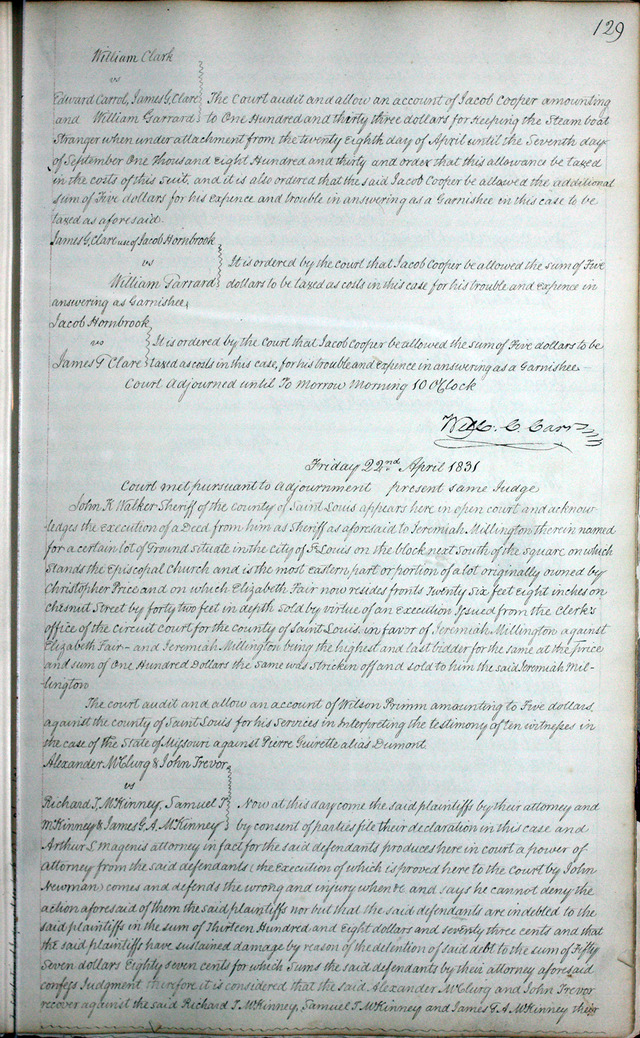 129
William Clark
vs
Edward Carrol, James G, Clare The Court audit and allow an account of Jacob Cooper amounting
and William Garrard to One Hundred and thirty three dollars for keeping the Steam boat
Stranger when under attachment from the twenty eighth day of April until the Seventh day
of September One Thousand Eight Hundred and thirty and order that this allowance be taxed
in the costs of this Suit, and it is also ordered that the said Jacob Cooper be allowed the additional
sum of Five dollars for his expence and trouble in answering as a Garnishee in this case to be
taxed as aforesaid.
James G, Clare use of Jacob Hornbrook
vs It is ordered by the court that Jacob Cooper be allowed the sum of Five
William Garrard dollars to be taxed as costs in this case for his trouble and expence in
answering as Garnishee,
Jacob Hornbrook,
vs It is ordered by the Court that Jacob Cooper be allowed the sum of Five dollars to be
James G Clare taxed as costs in this case, for his trouble and expence in answering as a Garnishee —
Court Adjourned until To Morrow Morning 10 OClock
Will. C. Carr
Friday 22nd April 1831
Court met pursuant to adjournment present same Judge
John K Walker Sheriff of the county of Saint Louis appears here in open court and acknow
-ledges the execution of a Deed from him as Sheriff as aforesaid to Jeremiah Millington therein named
for a certain lot of Ground situate in the City of St Louis on the block next South of the square on which
Stands the Episcopal Church and is the most eastern part or portion of a lot originally owned by
Christopher Price and on which Elizabeth Fair now resides fronts Twenty Six feet eight inches on
Chesnut Street by forty two feet in depth sold by virtue of an Execution Issued from the Clerk's
office of the Circuit Court for the county of Saint Louis, in favor of Jeremiah Millington against
Elizabeth Fair — and Jeremiah Millington being the highest and last bidder for the same at the price
and sum of One Hundred Dollars the same was stricken off and sold to him the said Jeremiah Mil-
-lington
The court audit and allow an account of Wilson Primm amounting to Five dollars,
against the county of Saint Louis for his Services in Interpreting the testimony of ten witnesses in
the case of the State of Missouri against Pierre Guirette alias Dumont
Alexander McClurg & John Trevor
vs
Richard T, McKinney, Samuel T Now at this day come the said plaintiffs by their attorney and
McKinney & James G. A. McKinney by consent of parties file their declaration in this case and
Arthur L Magenis attorney in fact for the said defendants produces here in court a power of
attorney from the said defendants (the execution of which is proved here to the court by John
Newman) comes and defends the wrong and injury when &c and says he cannot deny the
action aforesaid of them the said plaintiffs nor but that the said defendants are indebted to the
said plaintiffs in the sum of Thirteen Hundred and Eight dollars and seventy three cents and that
the said plaintiffs have sustained damage by reason of the detention of said debt to the sum of Fifty
Seven dollars Eighty seven cents for which Sums the said defendants by their attorney aforesaid
confess Judgment therefore it is considered that the said Alexander McClurg and John Trevor
recover against the said Richard T. McKinney, Samuel T McKinney and James G A McKinney their